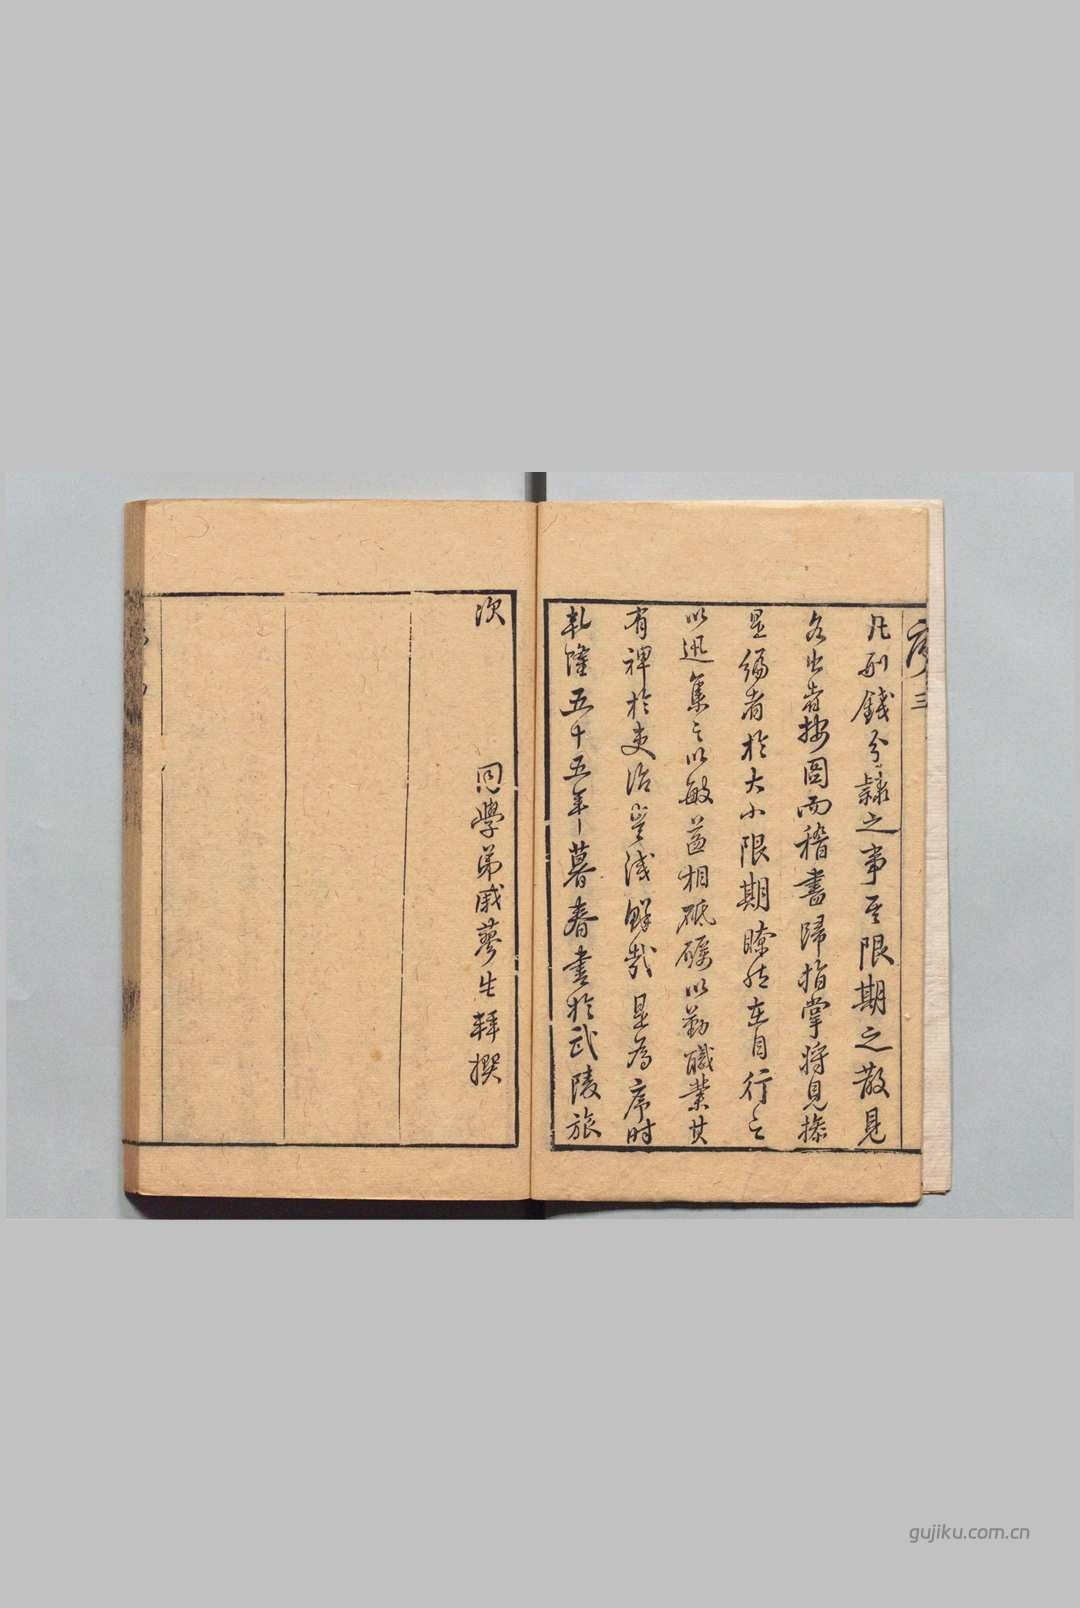 序 三
凡刑錢分隸之事至限期之散見
各出者按圖而稽盡歸指掌將見操
是編者於大小限期瞭然在目行之
以迅集之以敏益相砥礪以勤職業其
有裨於吏治豈淺鮮哉是為序時
乾隆五十五年暮春書於武陵旅
次
同學弟戚蓼生拜撰
gujiku.com.cn